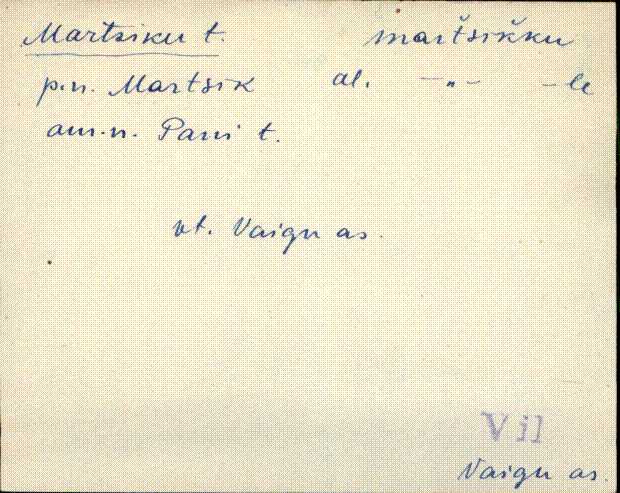 Martsiku t. maršsikku
p.n. Martsik al. —„— –le
am.n. Pani t.
vt. Vaigu as.
Vil
Vaigu as.